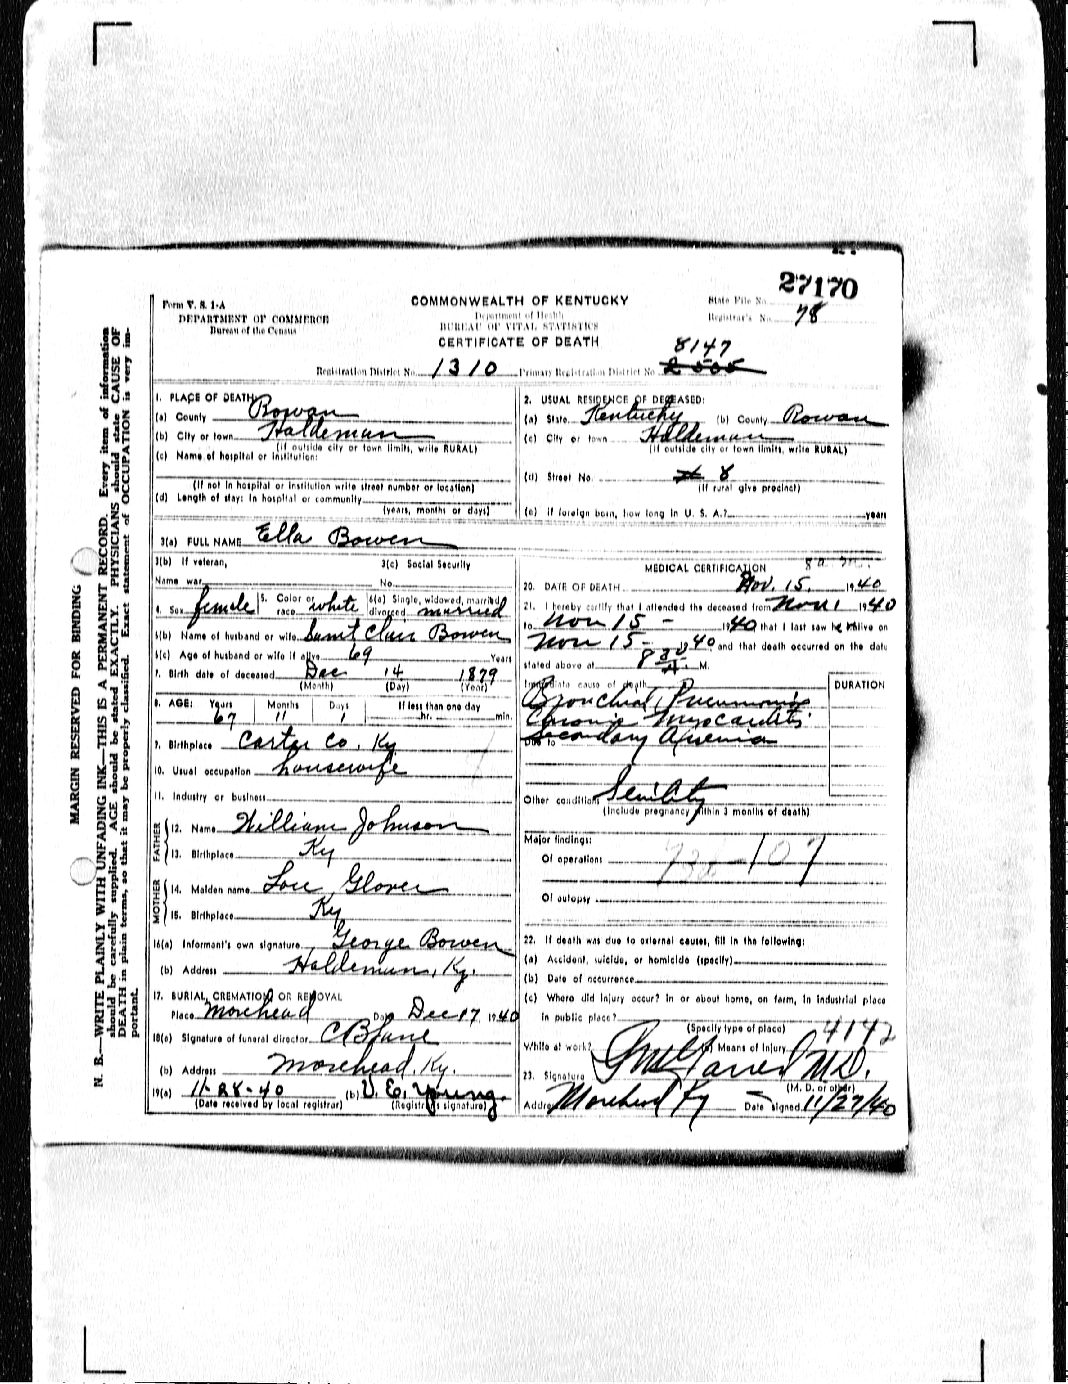 27170
Form V. S. 1-A
DEPARTMENT OF COMMERCE
Bureau of the Census
COMMONWEALTH OF KENTUCKY
Department of Health
BUREAU OF VITAL STATISTICS
CERTIFICATE OF DEATH
State File No.
Registrar's No. 78
8147
Registration District No. 1310 Primary Registration District No.
MARGIN RESERVED FOR BINDING
N. B.—WRITE PLAINLY WITH UNFADING INK—THIS IS A PERMANENT RECORD. Every item of information
should be carefully supplied. AGE should be stated EXACTLY. PHYSICIANS should state CAUSE OF
DEATH in plain terms, so that it may be properly classified. Exact statement of OCCUPATION is very im-
portant.
1. PLACE OF DEATH
(a) County Rowan
(b) City or town Haldeman
(If outside city or town limits, write RURAL)
(c) Name of hospital or institution:
(If not in hospital or institution write street number or location)
(d) Length of stay: In hospital or community
(years, months or days)
2. USUAL RESIDENCE OF DECEASED:
(a) State Kentucky (b) County Rowan
(c) City or town Haldeman
(If outside city or town limits, write RURAL)
(d) Street No. # 8
(If rural give precinct)
(e) If foreign born, how long in U. S. A.? years
3(a) FULL NAME Ella Bowen
3(b) If veteran,
Name war
3(c) Social Security
No.
4. Sex female 5. Color or race white 6(a) Single, widowed, married, divorced married
6(b) Name of husband or wife Saint Clair Bowen
6(c) Age of husband or wife if alive 69 Years
7. Birth date of deceased Dec 14 1879
(Month) (Day) (Year)
8. AGE: Years Months Days If less than one day
67 11 1 hr. min.
9. Birthplace Carter Co. Ky
10. Usual occupation housewife
11. Industry or business
FATHER
12. Name William Johnson
13. Birthplace Ky
MOTHER
14. Maiden name Lou Glover
15. Birthplace Ky
16(a) Informant's own signature George Bowen
(b) Address Haldeman, Ky.
17. BURIAL, CREMATION OR REMOVAL
Place Morehead Date Dec 17 1940
18(a) Signature of funeral director C B Lane
(b) Address Morehead, Ky.
19(a) 11-28-40 (b) V. E. Young.
(Date received by local registrar) (Registrar's signature)
MEDICAL CERTIFICATION
20. DATE OF DEATH Nov. 15, 1940
21. I hereby certify that I attended the deceased from Nov 1 1940
to Nov 15 - 1940 that I last saw h alive on
Nov 15 - 1940 and that death occurred on the date
stated above at 8 30 A. M.
Immediate cause of death DURATION
Bronchial Pneumonia
Chronic Myocarditis
Due to Secondary Anemia
Other conditions Senility
(Include pregnancy within 3 months of death)
Major findings:
Of operations 107
Of autopsy
22. If death was due to external causes, fill in the following:
(a) Accident, suicide, or homicide (specify)
(b) Date of occurrence
(c) Where did injury occur? In or about home, on farm, in industrial place
in public place?
(Specify type of place) 4142
While at work? (e) Means of Injury
23. Signature M.D.
(M. D. or other)
Address Morehead Ky Date signed 11/27/40